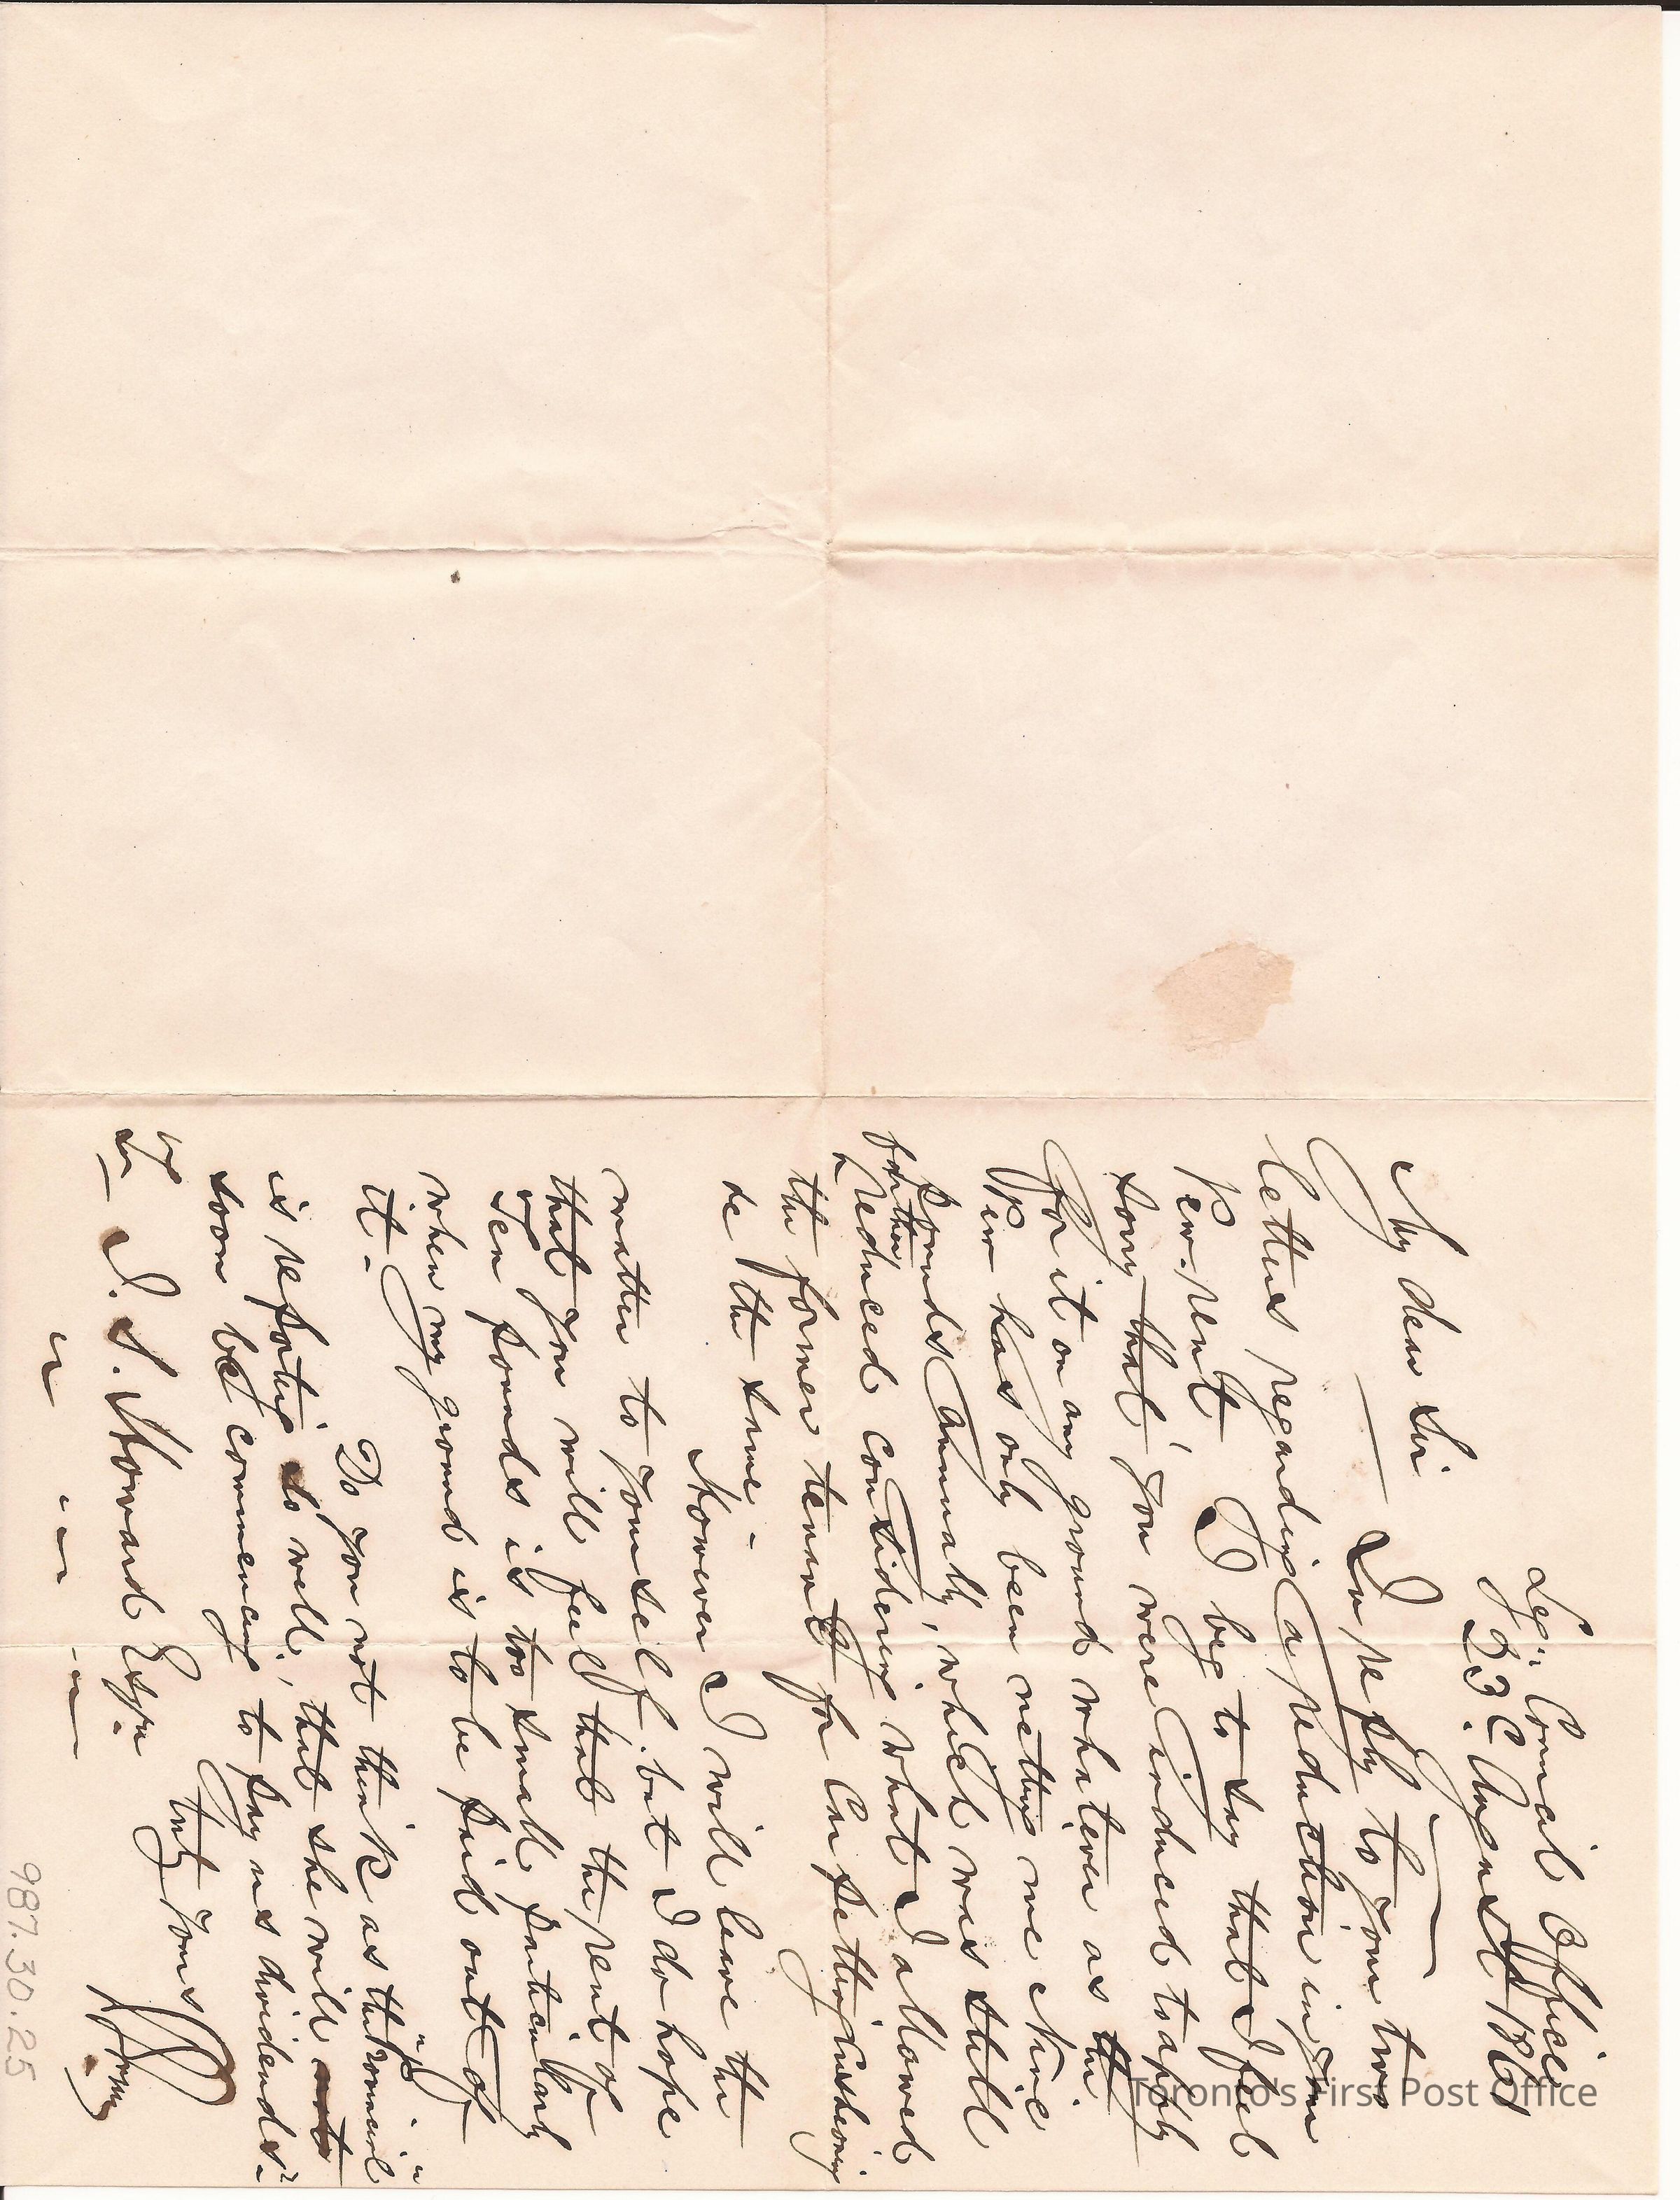 Leg: Council Office
23. August 1860
My dear Sir
In reply to your two
letters regarding a reduction in your
Pew-rent I beg to say that I feel
sorry that you were induced to apply
for it on any ground whatever as the
Pew has only been netting me Nine
pounds annually, which was still
further
reduced considering what I allowed
the former tenant for Carpetting Cushioning
&c the same -
However I will leave the
matter to yourself. but I do hope
that you will feel that the rent of
Ten pounds is too small particularly
when my ground is to be paid out of
it -
Do you not think as the "Provincial"
is reporting so well, that she will
soon be commencing to pay us dividends?
Truly Yours
J. S. Howard Esqre
987.30.25
Toronto's First Post Office